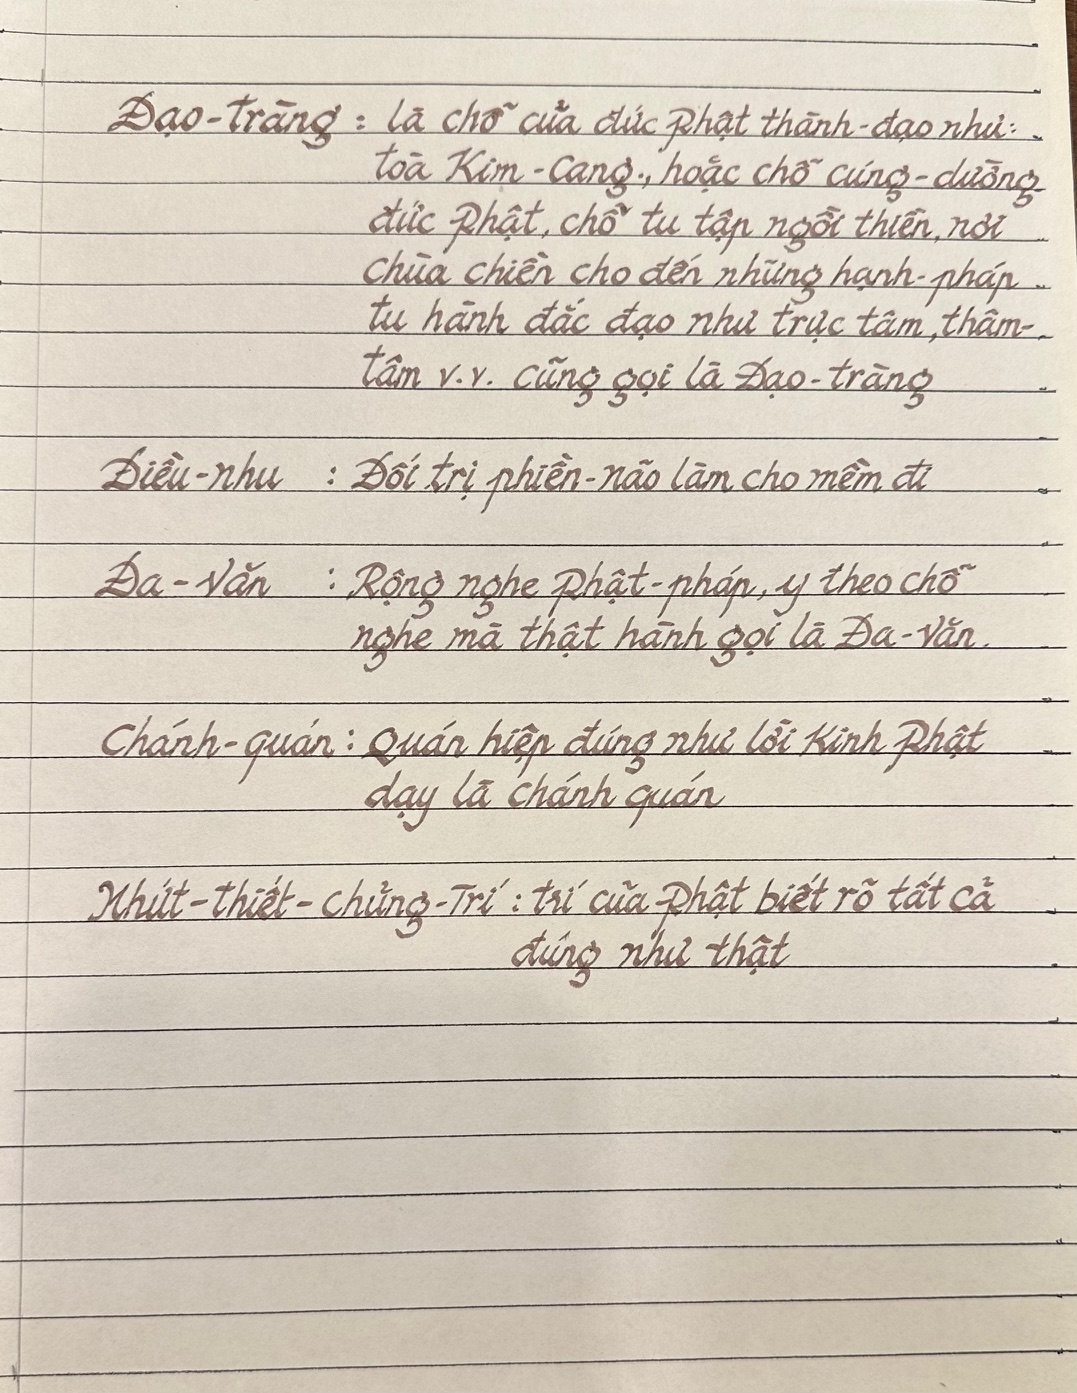 Đạo-tràng : là chỗ của đức Phật thành-đạo như:
toà Kim-Cang., hoặc chỗ cúng-dường
đức Phật, chỗ tu tập ngồi thiền, nơi
chùa chiền cho đến những hạnh-pháp
tu hành đắc đạo như trực tâm, thâm-
tâm v.v. cũng gọi là Đạo-tràng
Điều-nhu : Đối trị phiền-não làm cho mềm đi
Đa-Văn : Rộng nghe Phật-pháp, y theo chỗ
nghe mà thật hành gọi là Đa-Văn.
Chánh-quán : Quán hiệp đúng như lời Kinh Phật
dạy là chánh quán
Nhứt-thiết-chủng-Trí : trí của Phật biết rõ tất cả
đúng như thật